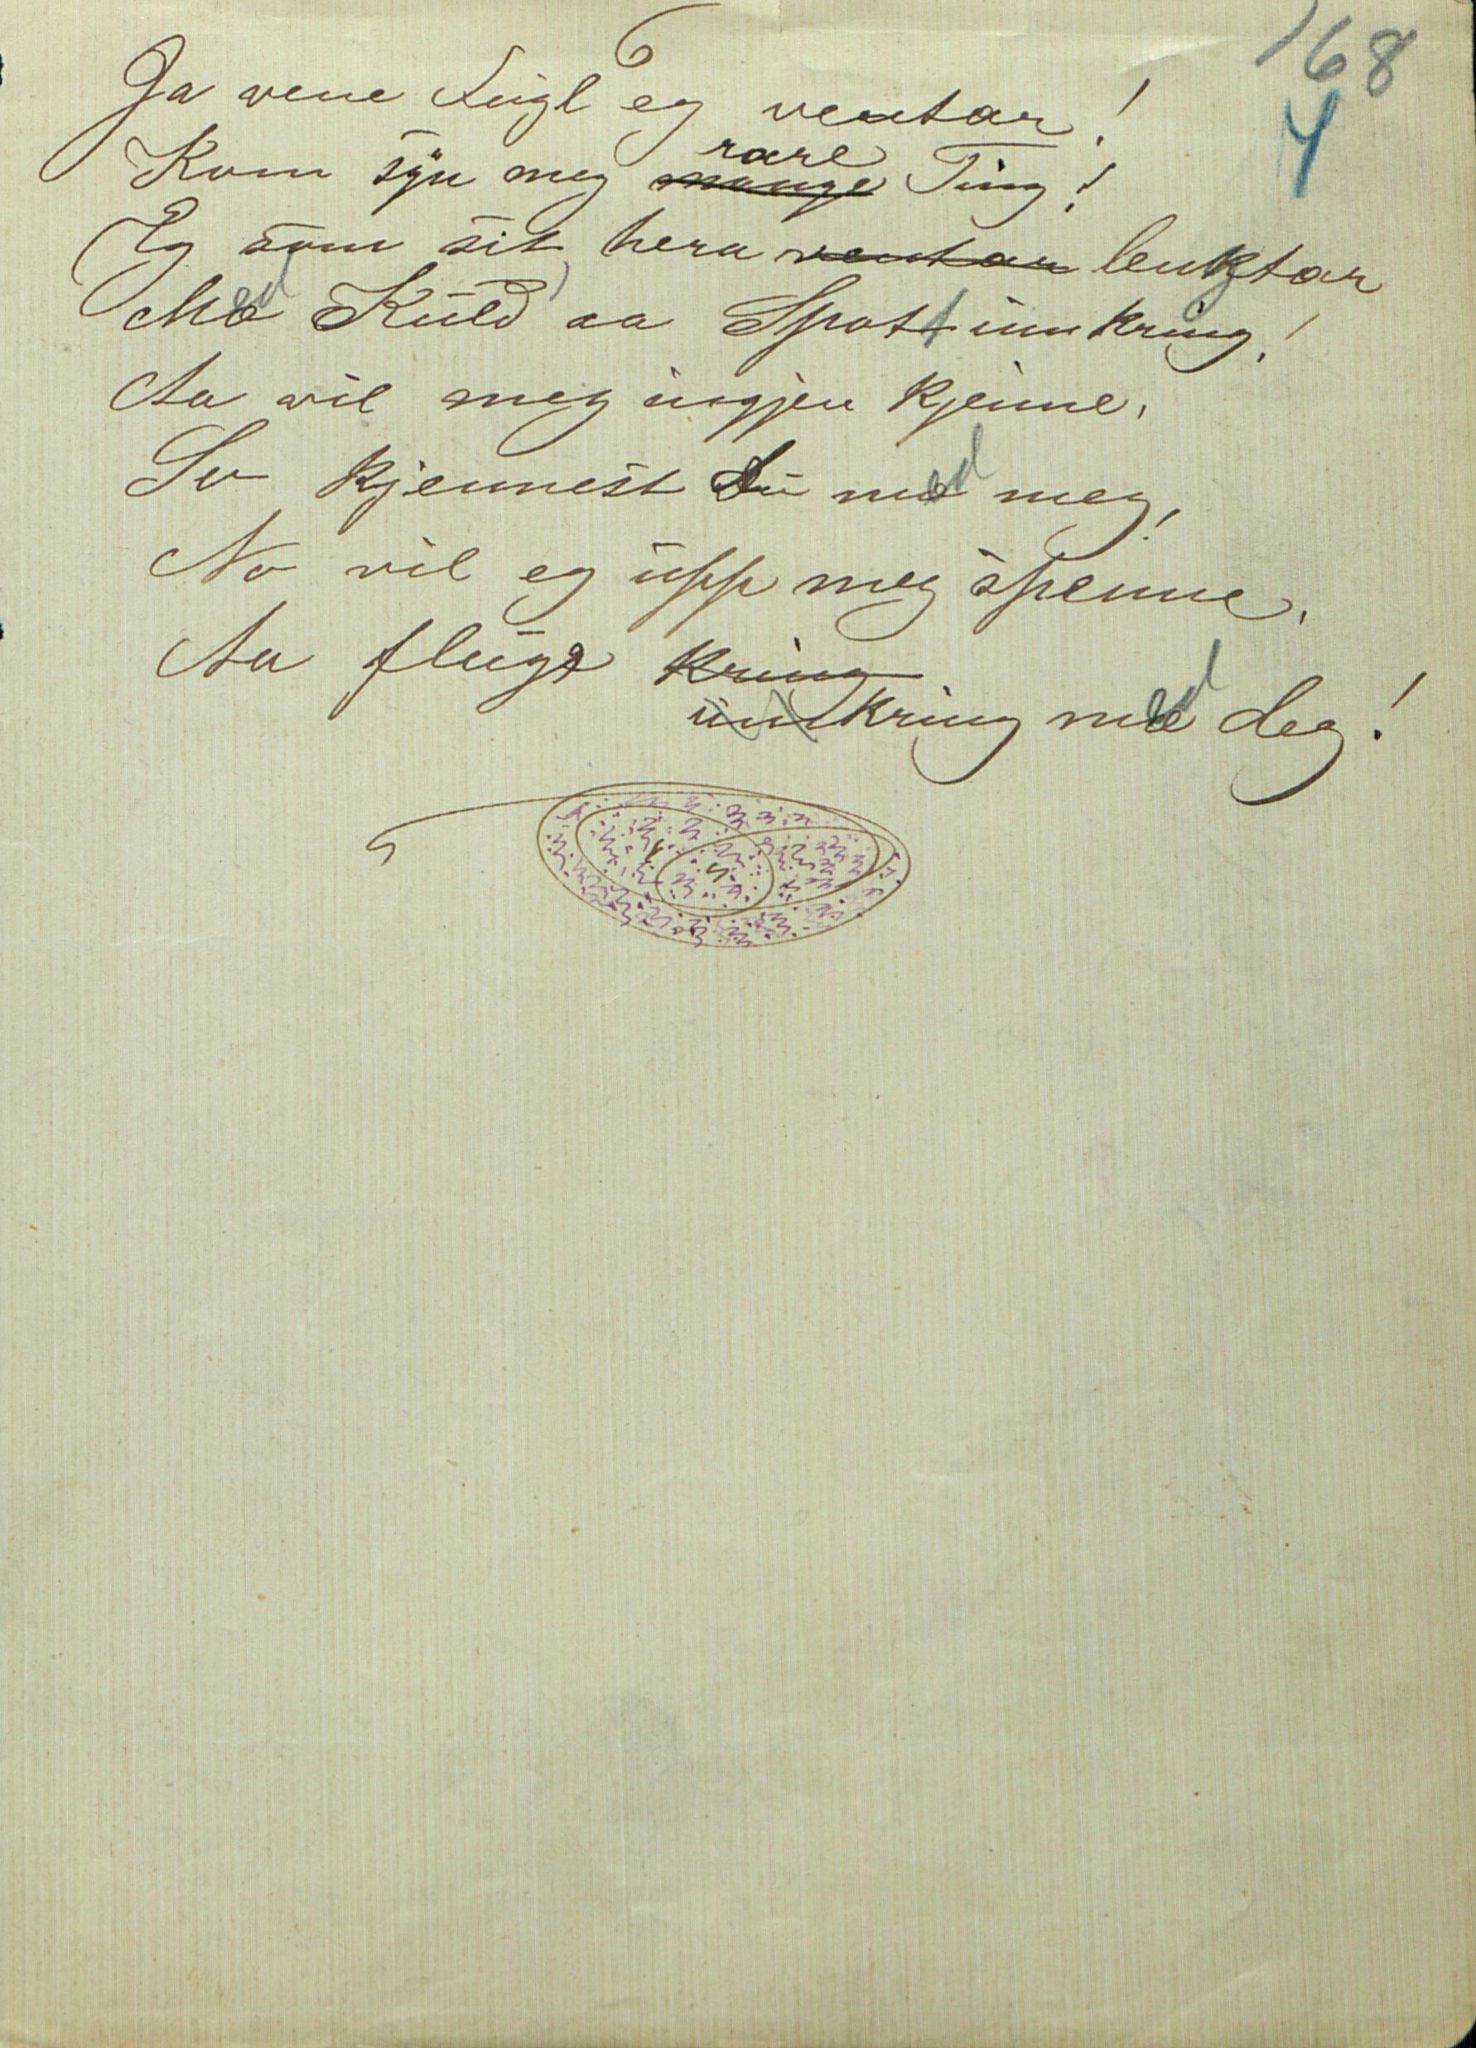 168
4
Ja vene Fugl eg ventar!
Kom syn meg mange rare Ting!
Eg som sit hera ventar lenktar
Med Kuld aa Spott umkring!
Aa vil meg ingjen kjenne,
So kjennest du med meg,
No vil eg upp meg spenne,
Aa fluge kring
umkring med deg!